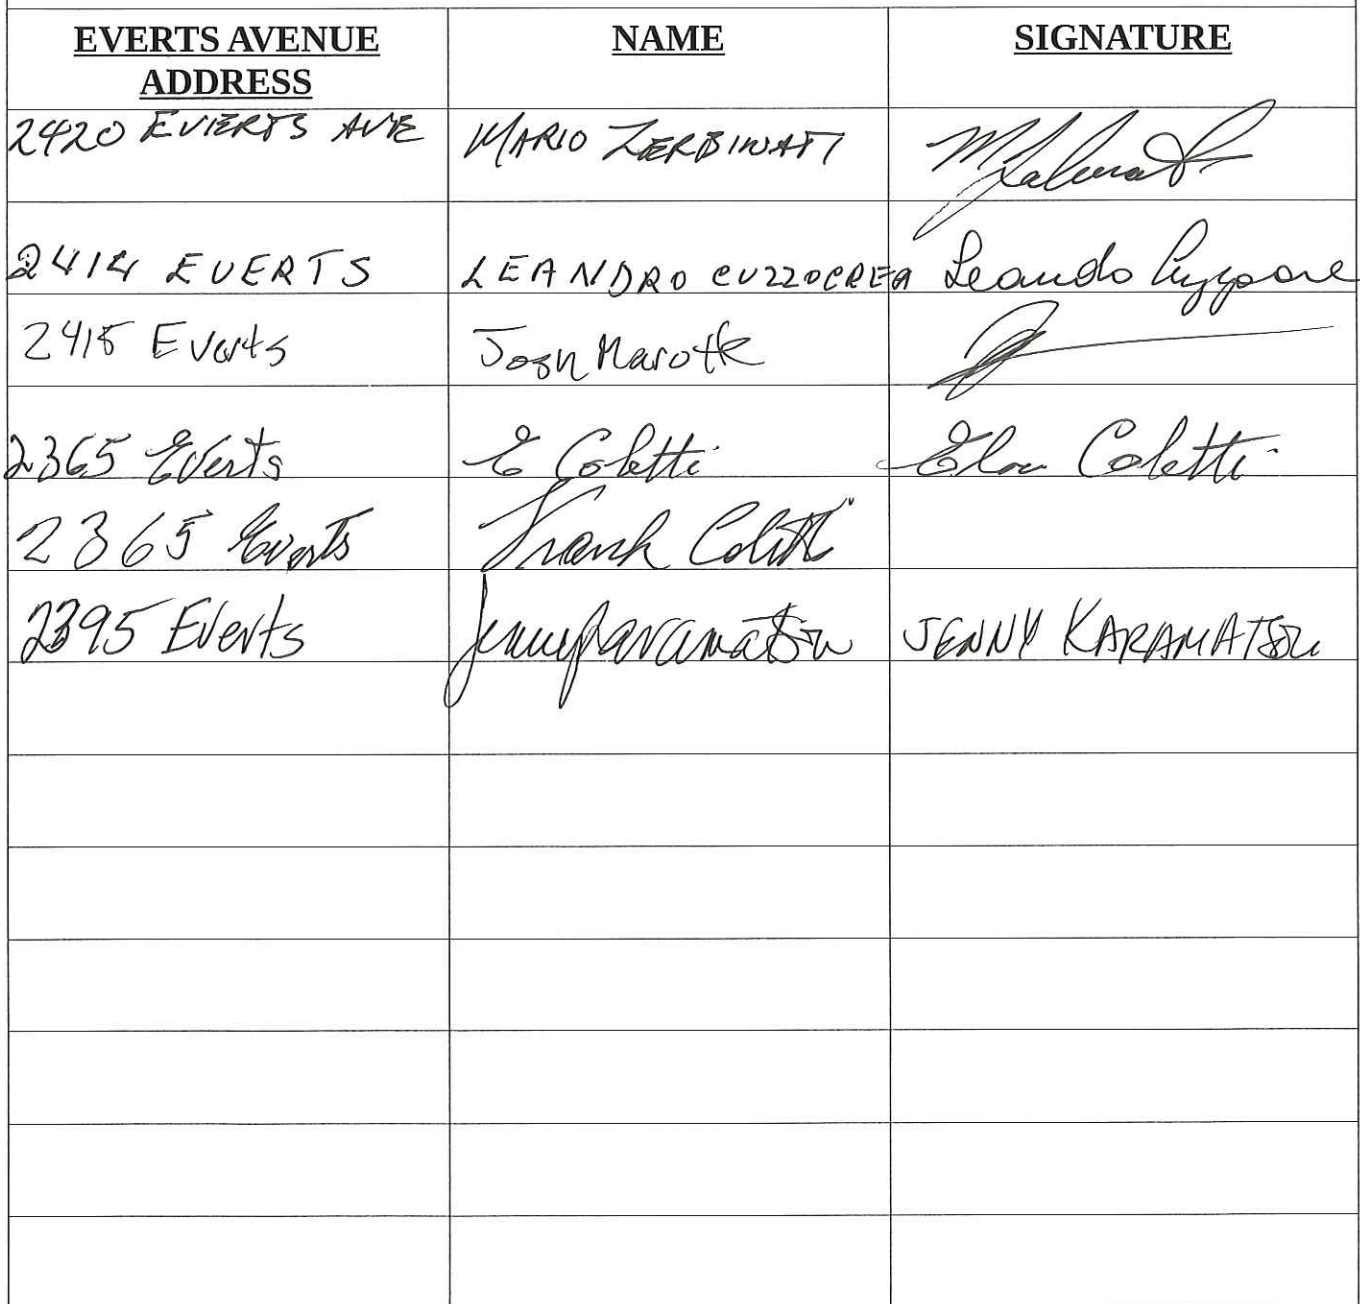 EVERTS AVENUE ADDRESS NAME SIGNATURE
2420 EVERTS AVE MARIO ZERBINATI
2414 EVERTS LEANDRO CUZZOCREA Leandro
2415 Everts Marotte
2365 Everts E Coletti Coletti
2365 Everts Frank Coletti
2395 Everts JENNY KARAMATSOU